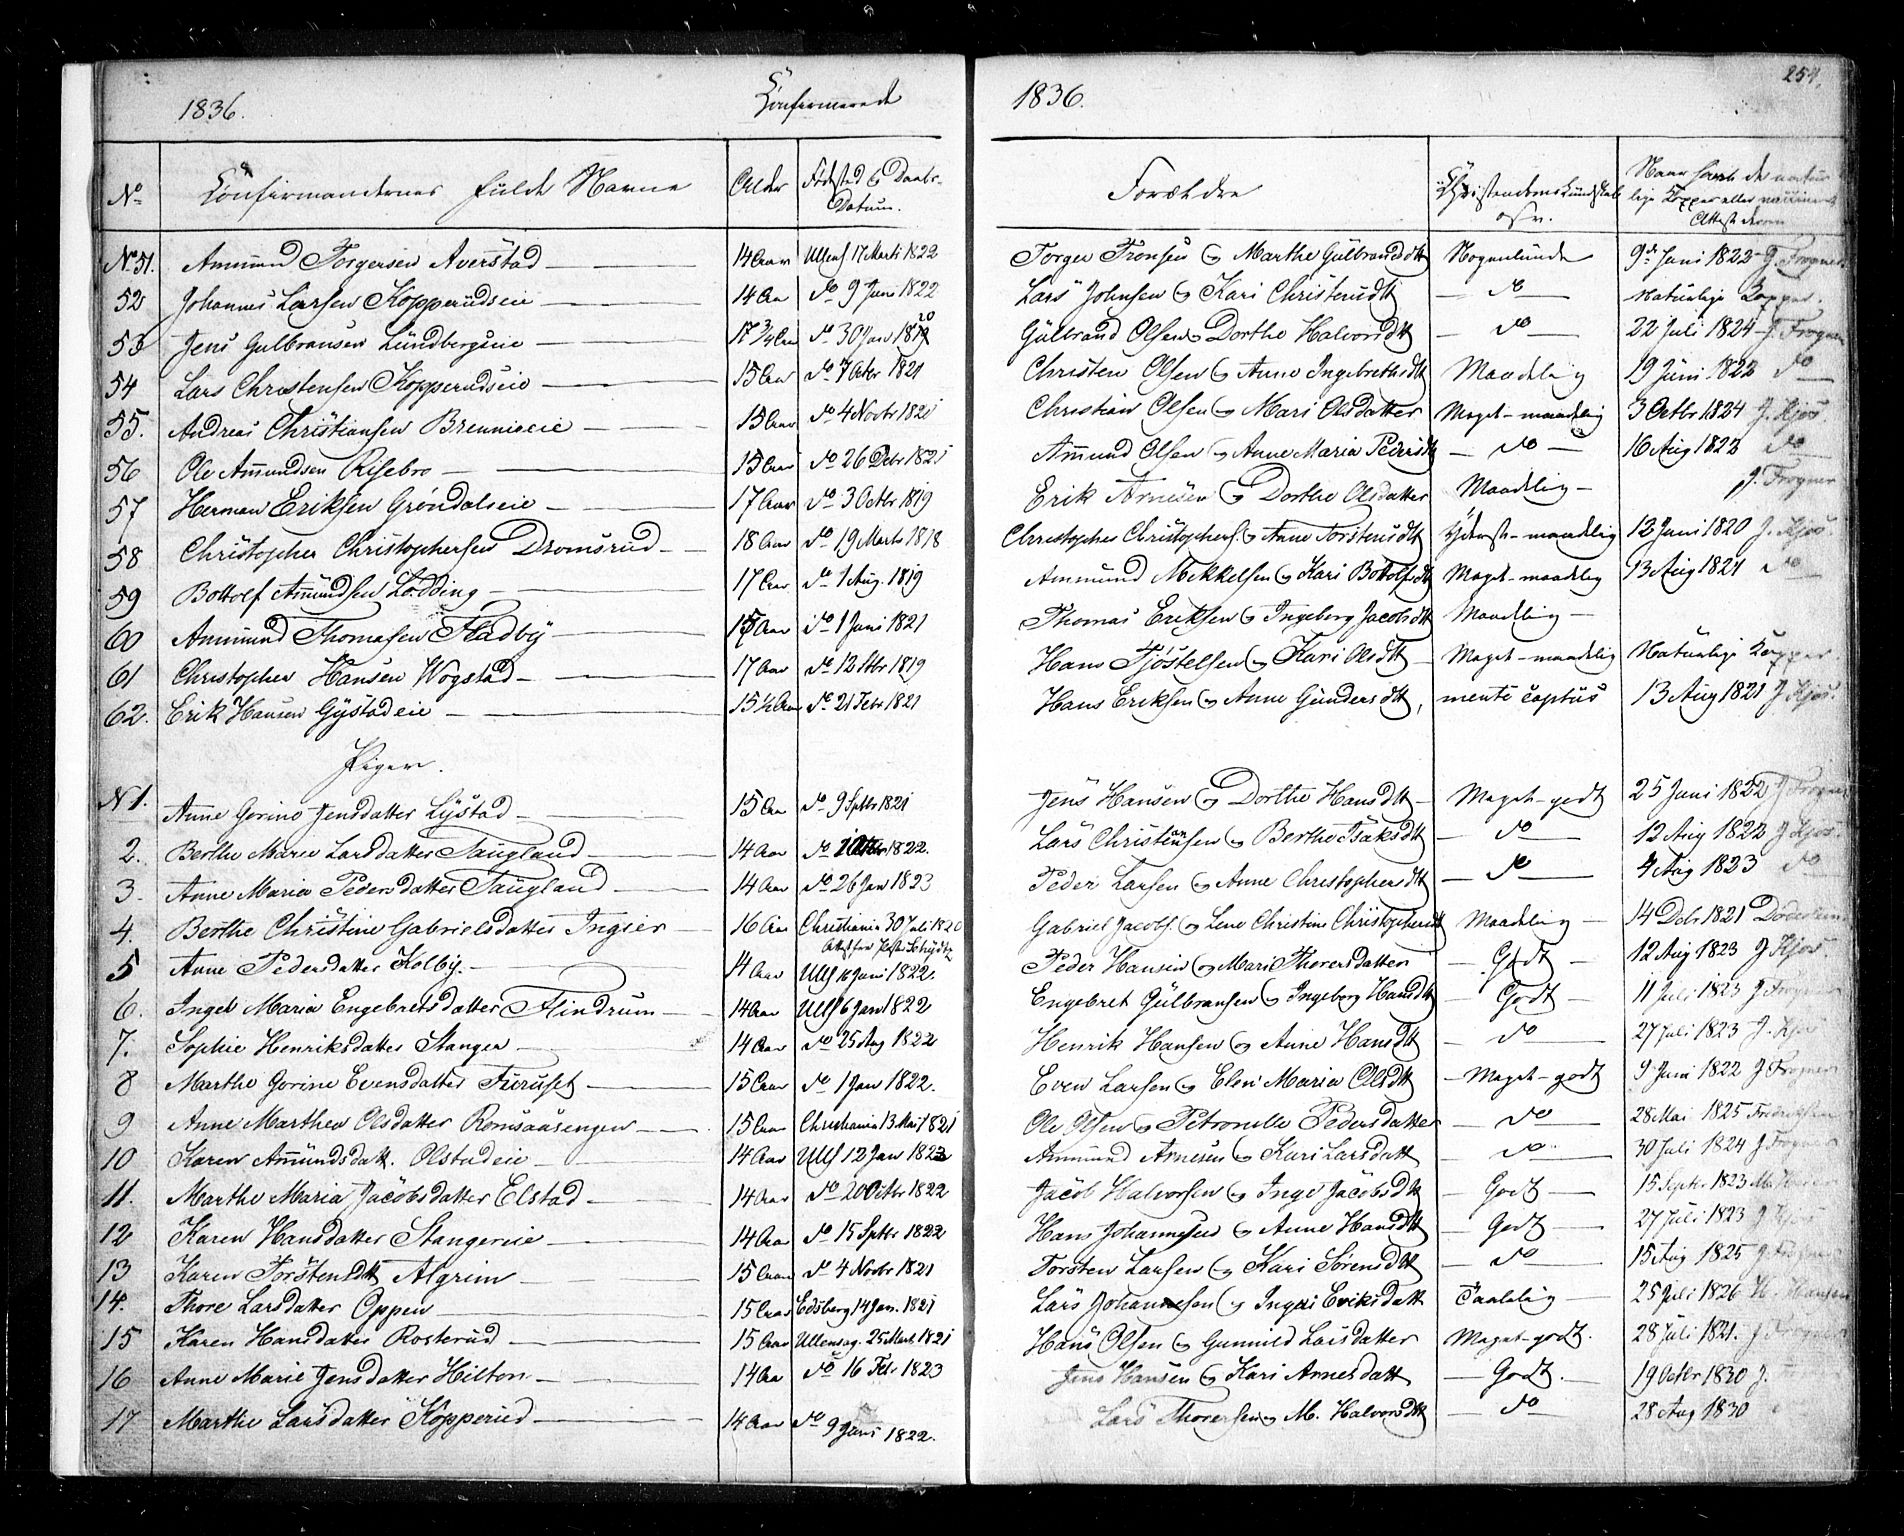 1836. Confirmerede
No Confirmandernes fulde Navne Alder Fødested & Daabs-Datum.
No 51. Ammund Torgersen Averstad 14 Aar Ullens 17 Marti 1822
52 Johannes Larsen Kopperudseie 14 Aar do 9 Juni 1822
53 Jens Gulbransen Lundbergseie 17 3/4 Aar do 30 Jan 1819 20
54 Lars Christensen Kopperudseie 15 Aar do 7 Octbr 1821
55. Andreas Christiansen Brennieeie 15 Aar do 4 Novbr 1821
56 Ole Amundsen Risebro 15 Aar do 26 Debr 1821
57 Herman Eriksen Grøndalseie 17 Aar do 3 Octbr 1819
58 Christopher Christophersen Dromsrud 18 Aar do 19 Marts 1818
59 Bottolf Amundsen Lødding 17 Aar do 1 Aug. 1819
60 Ammund Thomasen Fladby 15 Aar do 1 Juni 1821
61 Christopher Hansen Wogstad 17 Aar do 12 Stbr 1819
62. Erik Hansen Gystadeie 15 1/2 Aar do 21 Febr 1821
Piger.
N 1. Anne Gorine Jensdatter Lystad 15 Aar do 9 Sptbr 1821
2. Berthe Marie Larsdatter Taugland 14 Aar do 1822.
3. Anne Maria Pedersdatter Taugland 14 Aar do 26 Jan 1823
4. Berthe Christine Gabrielsdatter Ingier 16 Aar Christiania 30 Juli 1820
5 Anne Pedersdatter Kolby. 14 Aar Ulls 16 Juni 1822.
6. Ingeb Maria Engebretsdatter Flindrum 14 Aar Ulls 6 Jan 1822
7. Sophie Henriksdatter Stanger 14 Aar do 25 Aug 1822
8 Marthe Gorine Evensdatter Furuset 15 Aar do 1 Jan 1822.
9 Anne Marthea Olsdatter Romsaasengen 15 Aar Christiania 13 Mai 1821
10 Karen Amundsdatt. Olstadeie 14 Aar Ulls 12 Jan 1822
11. Marthe Maria Jacobsdatter Elstad 14 Aar do 20 Octbr 1822
12 Karen Hansdatter Stangereie 14 Aar do 15 Sptbr 1822
13 Karen Torstensdtt Algrim 15 Aar do 4 Novbr 1821
14. Thore Larsdatter Oppen 15 Aar Edsberg 14 Jan. 1821
15 Karen Hansdatter Rosterud 15 Aar Ullensag. 25 Marts 1821
16 Anne Marie Jensdatter Hilton 14 Aar do 16 Febr 1823
17 Marthe Larsdatter Kopperud 14 Aar do 9 Juni 1822.
1836. 254.
Forældre Christendomskundskab osv. Naar havt de naturlige Kopper eller vaccineret Attest derom
Torger Tronsen & Marthe Gulbrandsdtt Nogenlunde 9de Juni 1822 J. Frogner
Lars Johnsen & Kari Christensdtt do Naturlige Kopper.
Gulbrand Olsen & Dorthe Halvorsdtt do 22 Juli 1824 J. Frogner
Christen Olsen & Anne Ingebrethsdtt Maadelig 19 Juni 1822 do
Christian Olsen & Mari Olsdatter Maget-maadelig 3 Octbr 1824 J. Kjos.
Ammund Olsen & Anne Maria Pedersdtt do 16 Aug 1822 do
Erik Arnesen & Dorthe Olsdatter Maadelig J. Frogner
Christopher Christophers. & Anne Torstensdtt yderst-maadelig 12 Juni 1820 J. Kjos.
Ammund Mikkelsen & Kari Bottolfsdtt Maget-maadelig 13 Aug 1821 do
Thomas Eriksen & Ingeberg Jacobsdtt Maadelig
Hans Tjøstelsen & Kari Olsdtt Maget-maadelig Naturlige Kopper.
Hans Eriksen & Anne Gundersdtt, mente captus 13 Aug 1821 J. Kjos.
Jens Hansen & Dorthe Hansdtt Maget-godt 25 Juni 1822 J. Frogner
Lars Christiansen & Berthe Isaksdtt do 12 Aug 1822 J. Kjos.
Peder Larsen & Anne Christophersdtt do 4 Aug 1823 do
Gabriel Jacobs. & Lene Christine Christophersdtt Maadelig 14 Debr 1821
Peder Hansen & Mari Thorersdatter Godt 12 Aug 1823 J. Kjos
Engebret Gulbransen & Ingeborg Hansdtt Godt 11 Juli 1823 J. Frogner
Henrik Hansen & Anne Hansdtt do 27 Juli 1823 J. Kjos
Even Larsen & Eleni Maria Olsdtt Maget-godt 9 Juni 1822 J. Frogner
Ole Olsen & Petronelle Pedersdatter do 28 Mai 1825
Ammund Arnesen & Kari Larsdatt do 30 Juli 1824 J. Frogner
Jacob Halvorsen & Inge Jacobsdtt Godt 15 Septbr 1823
Hans Johannesen & Anne Hansdtt Godt 27 Juli 1823 J. Kjos
Torsten Larsen & Kari Sørensdtt do 15 Aug 1825 J. Frogner
Lars Johannesen & Ingeri Eriksdatt Taalelig 25 Juli 1826 H. Hansen
Hans Olsen & Gunnild Larsdatter Maget-godt. 28 Juli 1821. J. Frogner
Jens Hansen & Kari Arnesdatt Godt. 19 Octbr 1830 J.
Lars Thorersen & M. Halvorsdtt do 28 Aug 1830